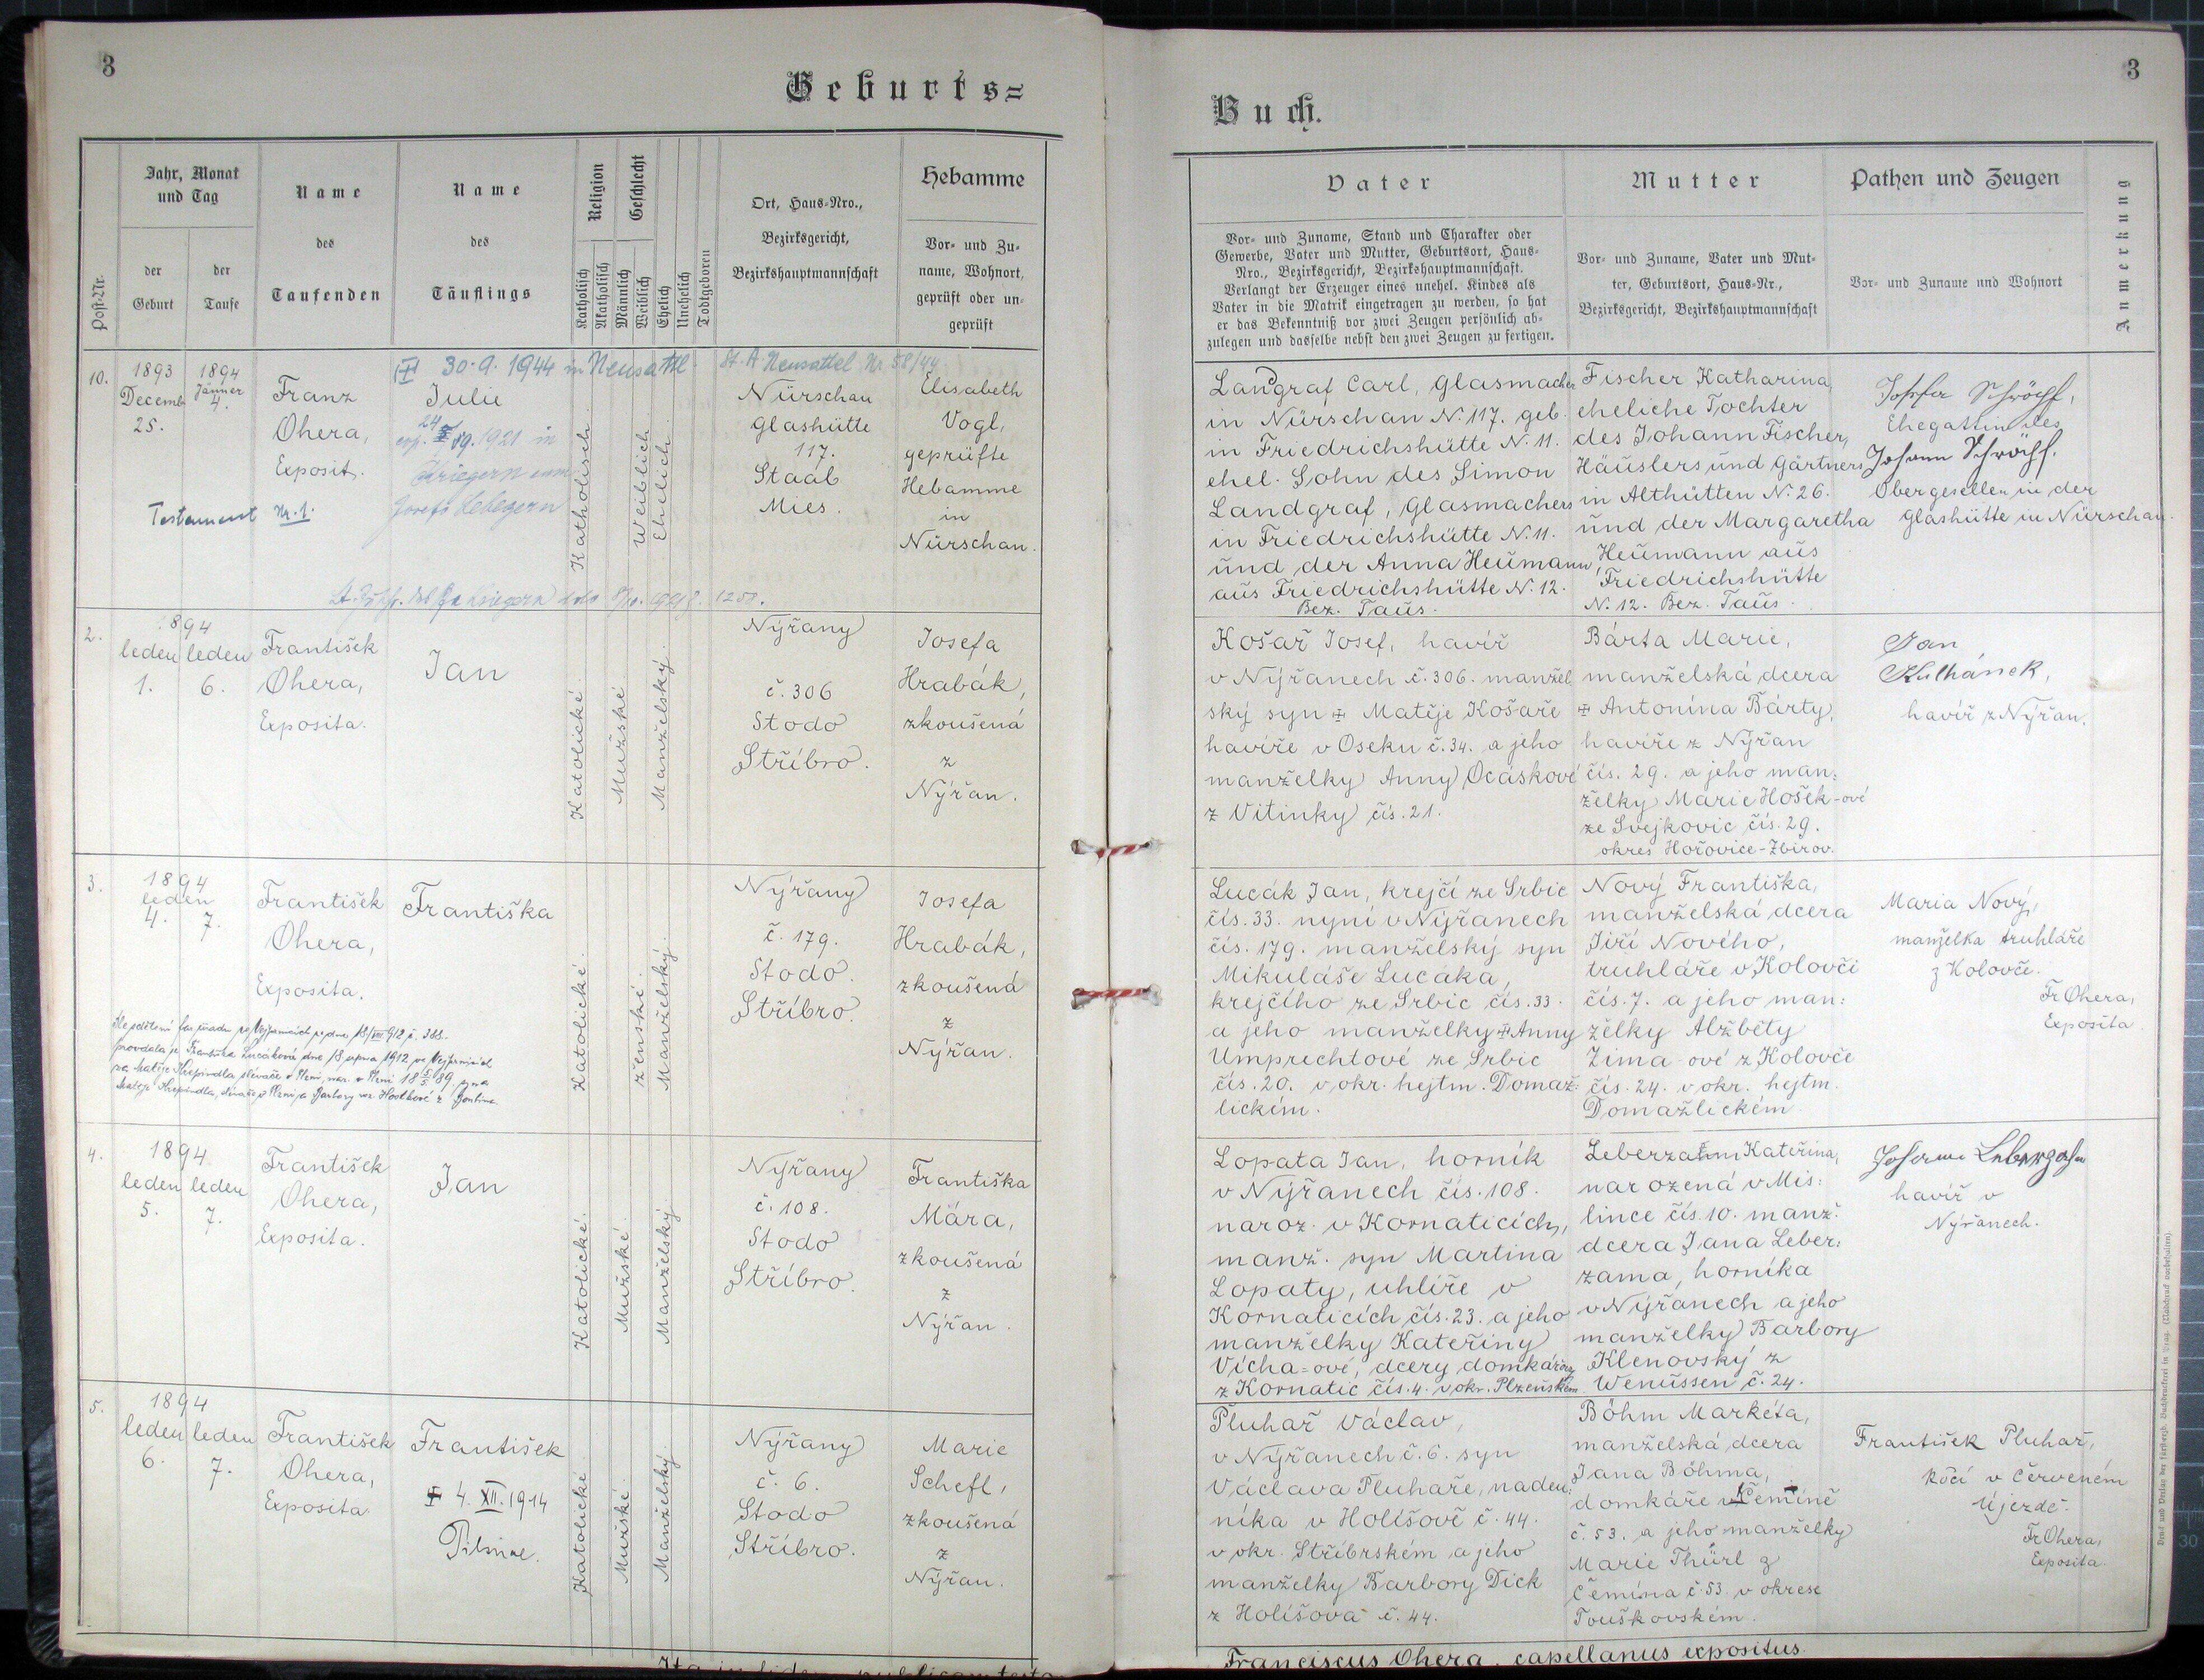 3
Geburts=
Jahr, Monat
und Tag
Name
des
Taufenden
Name
des
Täuflings
Religion
Geschlecht
Ort, Haus-Nro.,
Bezirksgericht,
Bezirkshauptmannschaft
Hebamme
Vor- und Zu-
name, Wohnort,
geprüft oder un-
geprüft
Post-Nr.
der
Geburt
der
Taufe
Katholisch
Akatholisch
Männlich
Weiblich
Ehelich
Unehelich
Todtgeboren
10.
1893
Decemb
25.
1894
Jänner
4.
Franz
Ohera,
Exposit.
Testament Nr. 1.
30.9.1944 in Neusattl St. A. Neusattel Nr 58/44
Julie
Katholisch
Weiblich
Ehelich
Nürschan
Glashütte
117.
Staab
Mies.
Elisabeth
Vogl,
geprüfte
Hebamme
in
Nürschan.
2.
1894
leden leden
1. 6.
František
Ohera,
Exposita.
Jan
Katolické
Mužské
Manželský
Nýřany
č. 306
Stodo
Stříbro.
Josefa
Hrabák,
zkoušená
z
Nýřan.
3.
1894
leden
4. 7.
František
Ohera,
Exposita.
Františka
Katolické
ženské
Manželský
Nýřany
č. 179.
Stodo.
Stříbro.
Josefa
Hrabák,
zkoušená
z
Nýřan.
4.
1894
leden leden
5. 7.
František
Ohera,
Exposita.
Jan
Katolické
Mužské
Manželský
Nýřany
č. 108.
Stodo
Stříbro.
Františka
Mára,
zkoušená
z
Nýřan.
5.
1894
leden leden
6. 7.
František
Ohera,
Exposita
František
4. XII. 1914
Katolické
Mužské
Manželský
Nýřany
č. 6.
Stodo
Stříbro.
Marie
Schefl,
zkoušená
z
Nýřan.
3
Buch.
Vater
Vor- und Zuname, Stand und Charakter oder
Gewerbe, Vater und Mutter, Geburtsort, Haus-
Nro., Bezirksgericht, Bezirkshauptmannschaft.
Verlangt der Erzeuger eines unehel. Kindes als
Vater in die Matrik eingetragen zu werden, so hat
er das Bekenntniß vor zwei Zeugen persönlich ab-
zulegen und dasselbe nebst den zwei Zeugen zu fertigen.
Mutter
Vor- und Zuname, Vater und Mut-
ter, Geburtsort, Haus-Nr.,
Bezirksgericht, Bezirkshauptmannschaft
Pathen und Zeugen
Vor- und Zuname und Wohnort
Anmerkung
Landgraf Carl, Glasmacher
in Nürschan N. 117. geb.
in Friedrichshütte N. 11.
ehel. Sohn des Simon
Landgraf, Glasmachers
in Friedrichshütte N. 11.
und der Anna Heumann
aus Friedrichshütte N. 12.
Bez. Taus.
Fischer Katharina,
eheliche Tochter
des Johann Fischer,
Häuslers und Gärtners
in Althütten N. 26.
und der Margaretha
Heumann aus
Friedrichshütte
N. 12. Bez. Taus.
Ehegattin des
Obergesellen in der
Glashütte in Nürschan.
Košař Josef, havíř
v Nýřanech č. 306. manžel
ský syn Matěje Košaře
havíře v Oseku č. 34. a jeho
manželky Anny Ocáskové
z Vitinky čís. 21.
Bárta Marie,
manželská dcera
Antonína Bárty,
havíře z Nýřan
čís. 29. a jeho man:
želky Marie Hošek-ové
ze Svejkovic čís. 29.
okres Hořovice-Zbirov.
Jan
Kulhánek,
havíř z Nýřan.
Lucák Jan, krejčí ze Srbic
čís. 33. nyní v Nýřanech
čís. 179. manželský syn
Mikuláše Lucáka,
krejčího ze Srbic čís. 33.
a jeho manželky Anny
Umprechtové ze Srbic
čís. 20. v okr. hejtm. Domaž:
lickém.
Nový Františka,
manželská dcera
Jiří Nového,
truhláře v Kolovči
čís. 7. a jeho man:
želky Alžběty
Zima-ové z Kolovče
čís. 24. v okr. hejtm.
Domažlickém
Maria Nový,
manželka truhláře
z Kolovče.
Fr Ohera,
Exposita
Lopata Jan, horník
v Nýřanech čís. 108.
naroz. v Kornaticích,
manž. syn Martina
Lopaty, uhlíře v
Kornaticích čís. 23. a jeho
manželky Kateřiny
Vícha=ové, dcery domkářovy
z Kornatic čís. 4. v okr. Plzeňském.
Leberzam Kateřina,
narozená v Mis:
lince čís. 10. manž.
dcera Jana Leber:
zama, horníka
v Nýřanech a jeho
manželky Barbory
Klenovský z
Wenussen č. 24.
havíř v
Nýřanech.
Pluhař Václav,
v Nýřanech č. 6. syn
Václava Pluhaře, naden:
níka v Holíšově č. 44.
v okr. Stříbrském a jeho
manželky Barbory Dick
z Holíšova č. 44.
Böhm Markéta,
manželská dcera
Jana Böhma,
domkáře v Čemíně
č. 53. a jeho manželky
Marie Thürl z
Čemína č. 53. v okrese
Touškovském.
František Pluhař,
kočí v Červeném
Újezdě.
Fr Ohera,
Exposita.
Franciscus Ohera, capellanus expositus.